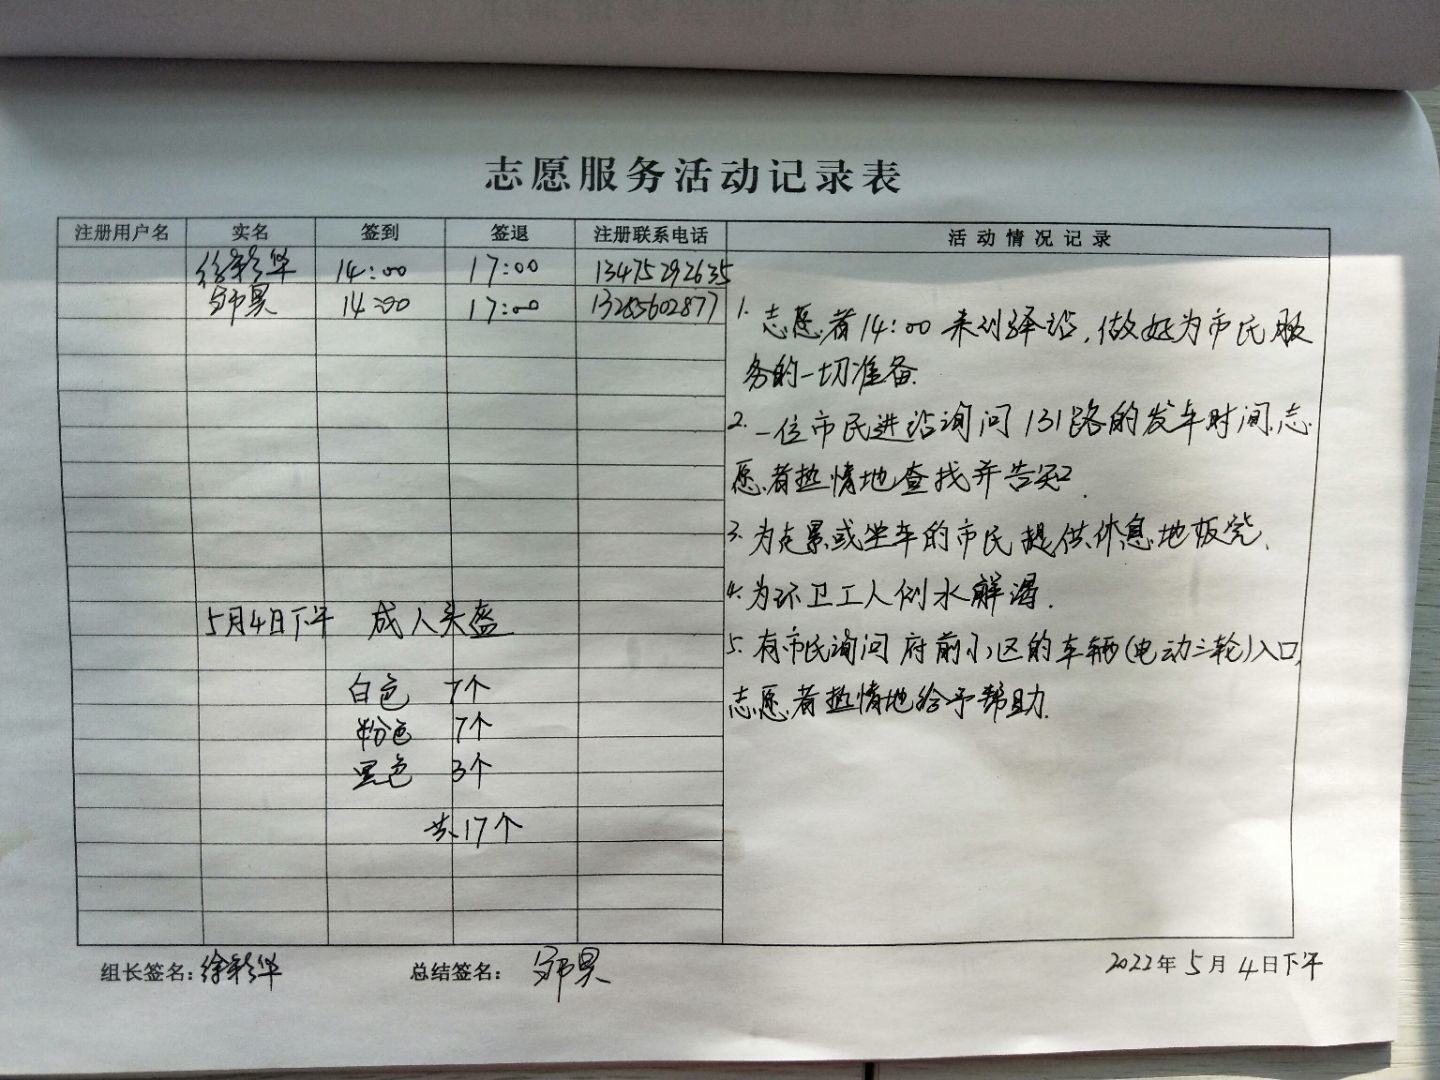 志愿服务活动记录表
注册用户名 实名 签到 签退 注册联系电话 活动情况记录
徐彩华 14:00 17:00 13475292635
昊 14:00 17:00 13285602877
1. 志愿者14:00来到驿站,做好为市民服
务的一切准备.
2. 一位市民进站询问131路的发车时间.志
愿者热情地查找并告知.
3. 为走累或坐车的市民提供休息地板凳.
4. 为环卫工人倒水解渴.
5. 有市民询问府前小区的车辆(电动三轮)入口,
志愿者热情地给予帮助.
5月4日下午 成人头盔
白色 7个
粉色 7个
黑色 3个
共17个
组长签名:徐彩华 总结签名: 昊 2022年5月4日下午